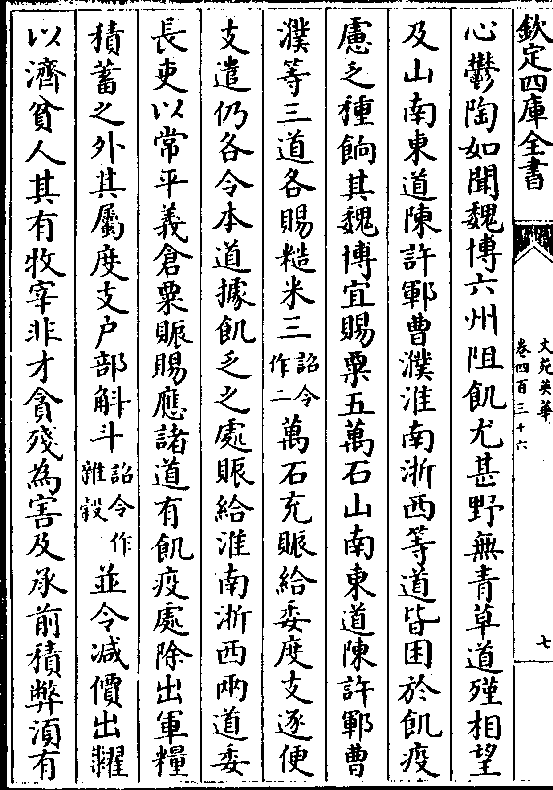 欽定四庫全書
文苑英華
卷四百三十六
七
心鬱陶如聞魏博六州阻飢尤甚野無青草道殣相望
及山南東道陳許鄆曹濮淮南浙西等道皆困於飢疫
慮乏種餉其魏博宜賜粟五萬石山南東道陳許鄆曹
濮等三道各賜糙米三詔令作二萬石充賑給委度支逐便
支遣仍各令本道據飢乏之處賑給淮南浙西兩道委
長吏以常平義倉粟賑賜應諸道有飢疫處除出軍糧
積蓄之外其屬度支户部斛斗詔令作雜糓並令减價出糶
以濟貧人其有牧宰非才貪殘為害及承前積弊湏有